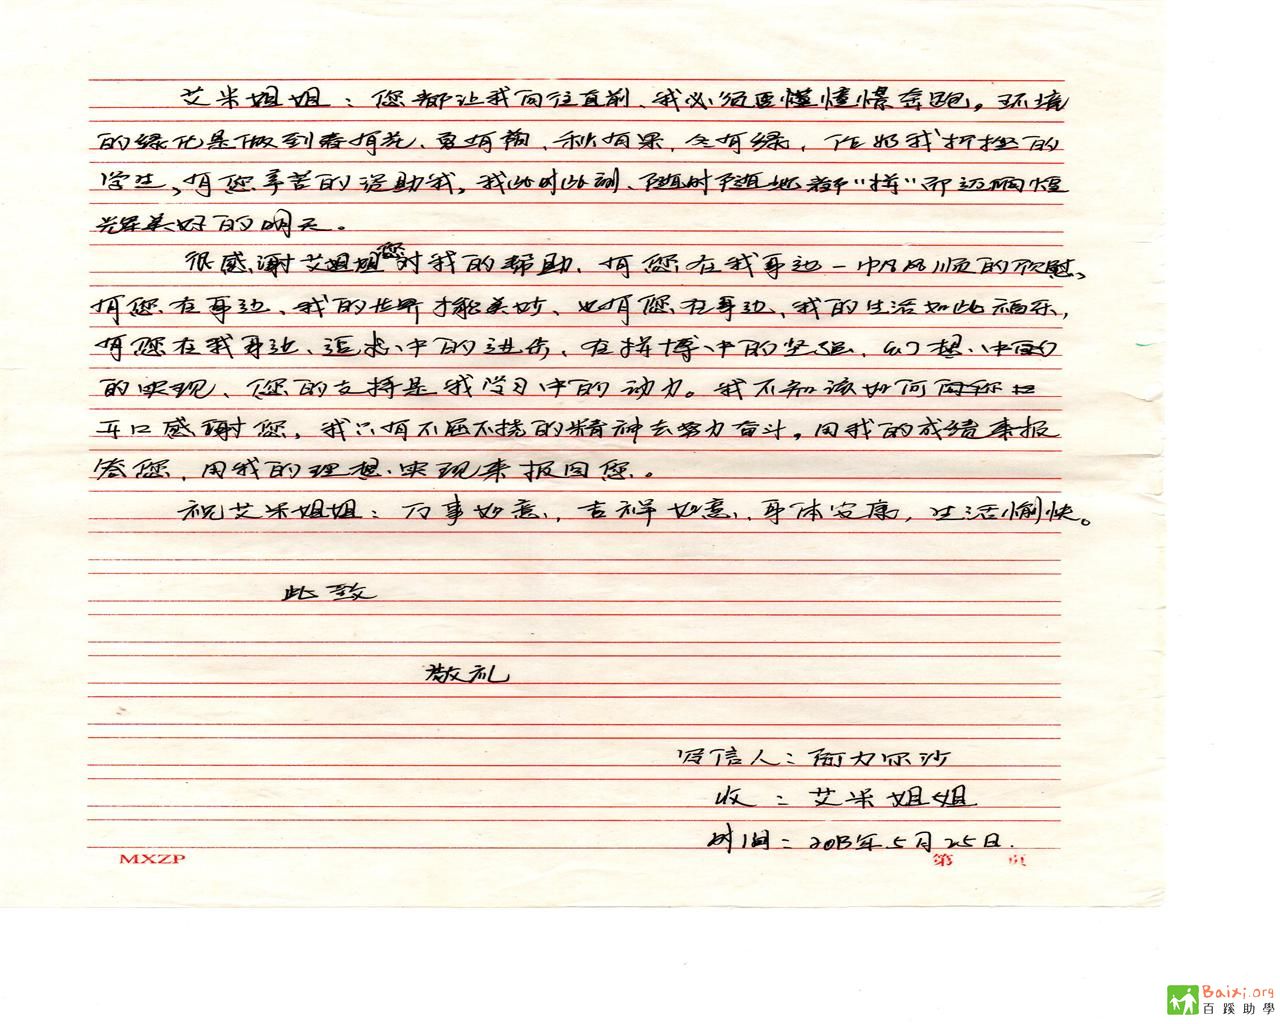 艾米姐姐：您都让我向往直前、我必须要懂憧憬奔跑。环境
的绿化是做到春有花、夏有荫、秋有果、冬有绿，作为我折挫的
学生，有您辛苦的资助我，我此时此刻、随时随地都“拼”而迈向恒
光辉美好的明天。
很感谢艾姐姐您对我的帮助、有您在我身边一帆风顺的欣慰，
有您在身边、我的世界才能美妙、也有您在身边、我的生活如此福乐，
有您在我身边、追求中的进步、在拼博中的坚强、幻想中的
的实现、您的支持是我学习中的动力。我不知该如何向您
开口感谢您，我只有不屈不挠的精神去努力奋斗，用我的成绩来报
答您，用我的理想实现来报回您。
祝艾米姐姐：万事如意，吉祥如意、身体安康，生活愉快。
此致
敬礼
写信人：阿力尔沙
收：艾米姐姐
时间：2013年5月25日.
MXZP 第 页
Baixi.org
百蹊助學